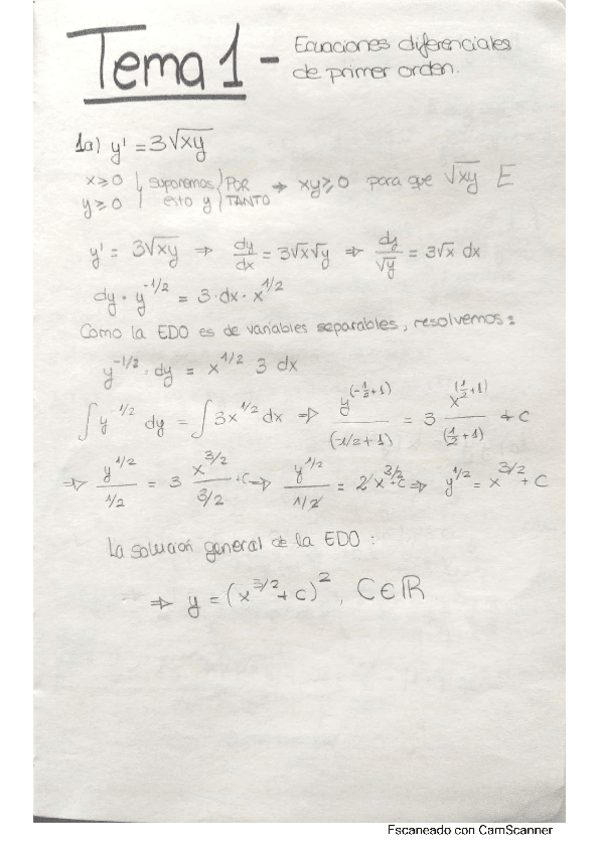 Tema 1 - Ecuaciones diferenciales
de primer orden.
1a) y' = 3√xy
x≥0 } suponemos } POR → xy≥0 para que √xy E
y≥0 } esto y } TANTO
y' = 3√xy ⇒ dy/dx = 3√x√y ⇒ dy/√y = 3√x dx
dy · y^-1/2 = 3·dx·x^1/2
Como la EDO es de variables separables, resolvemos:
y^-1/2 · dy = x^1/2 3 dx
∫y^1/2 dy = ∫3x^1/2 dx ⇒ y^(-1/2+1)/(-1/2+1) = 3 x^(1/2+1)/(1/2+1) + C
⇒ y^1/2/1/2 = 3 x^3/2/3/2 + C ⇒ y^1/2/1/2 = 2x^3/2 + C ⇒ y^1/2 = x^3/2 + C
La solución general de la EDO:
⇒ y = (x^3/2 + C)^2, C∈ℝ
Escaneado con CamScanner